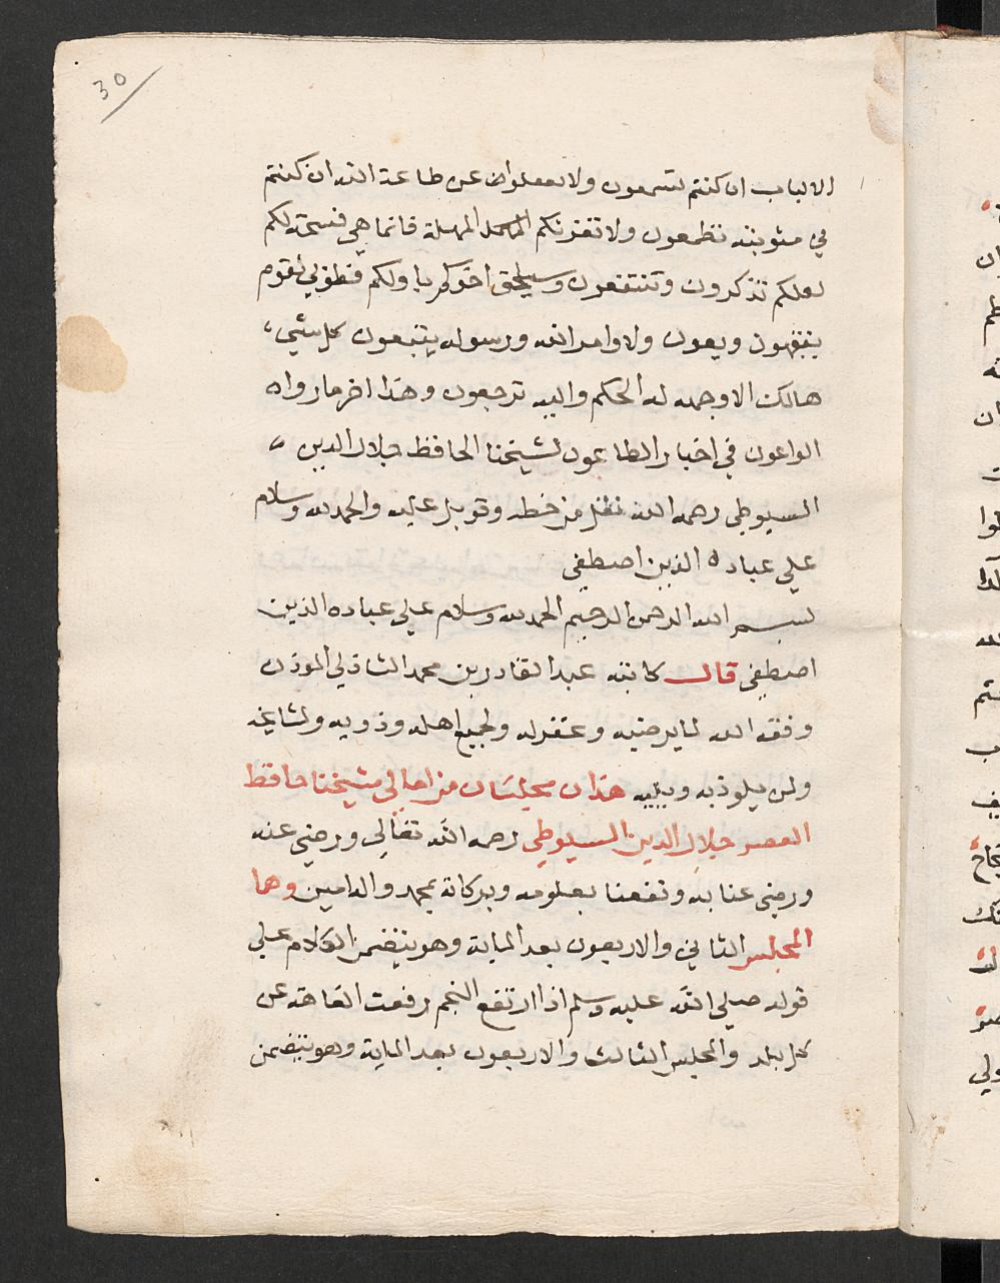 30
الالباب ان كنتم تسمعون ولا تغفلوا عن طاعة الله ان كنتم
في مثوبته تطمعون ولا تغرنكم المهلة فانما هي فسحة لكم
لعلكم تذكرون وتنتفعون وسيلحق اخركم باولكم فطوبي لقوم
يفقهون ويعون ولاوامر الله ورسوله يتبعون كل شي،
هالك الا وجهه له الحكم واليه ترجعون وهذا اخر ما رواه
الواعون في اخبار الطاعون لشيخنا الحافظ جلال الدين،
السيوطي رحمه الله نقل من خطه وقوبل عليه والحمد لله وسلام
علي عباده الذين اصطفي
بسم الله الرحمن الرحيم الحمد لله وسلام علي عباده الذين
اصطفي قال كاتبه عبد القادر بن محمد الشاذلي الموذن
وفقه الله لما يرضيه وغفر له ولجميع اهله وذويه ولمشايخه
ولمن يلوذ به ويليه هذان مجلسان من امالي شيخنا حافظ
العصر جلال الدين السيوطي رحمه الله تعالي ورضي عنه
ورضي عنا به ونفعنا بعلومه وبركاته بمحمد واله امين وها
المجلس الثاني والاربعون بعد الماية وهو يتضمن الكلام علي
قوله صلي الله عليه وسلم اذا ارتفع النجم رفعت العاهة عن
كل بلد والمجلس الثالث والاربعون بعد الماية وهو يتضمن